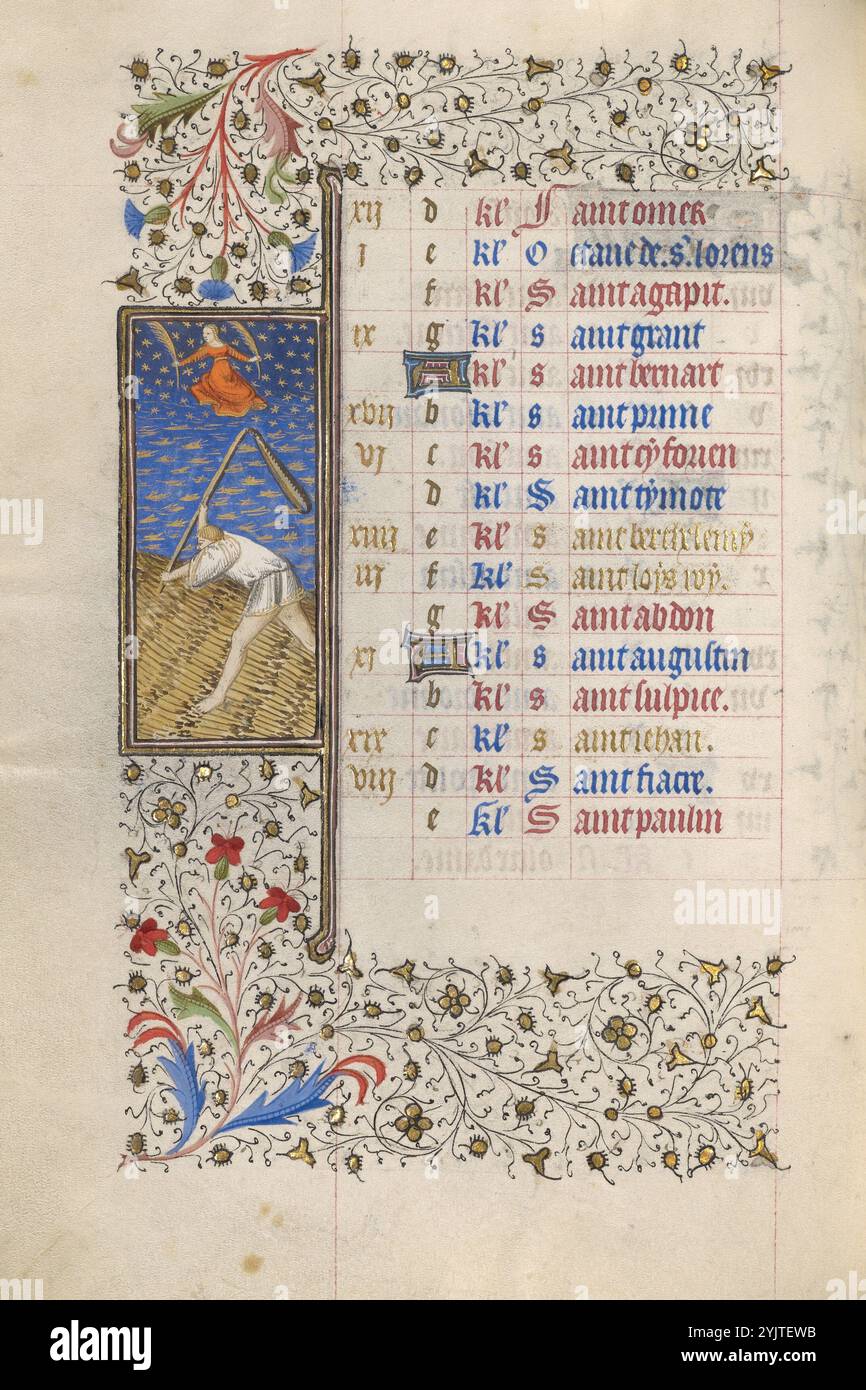 xij d kl' Saint omer
j e kl' Octave de s. lorens
f kl' Saint agapit.
ix g kl' saint grant
A kl' saint bernart
xvij b kl' saint prinne
vj c kl' saint cyforien
d kl' Saint tymote
xiiij e kl' saint berthelemy
iij f kl' Saint loys roy.
g kl' Saint abdon
xj A kl' saint augustin
b kl' saint sulpice.
xix c kl' saint iehan.
viij d kl' Saint fiacre.
e kl' Saint paulin
alamy
alamy
Image ID: 2YJTEWB
www.alamy.com